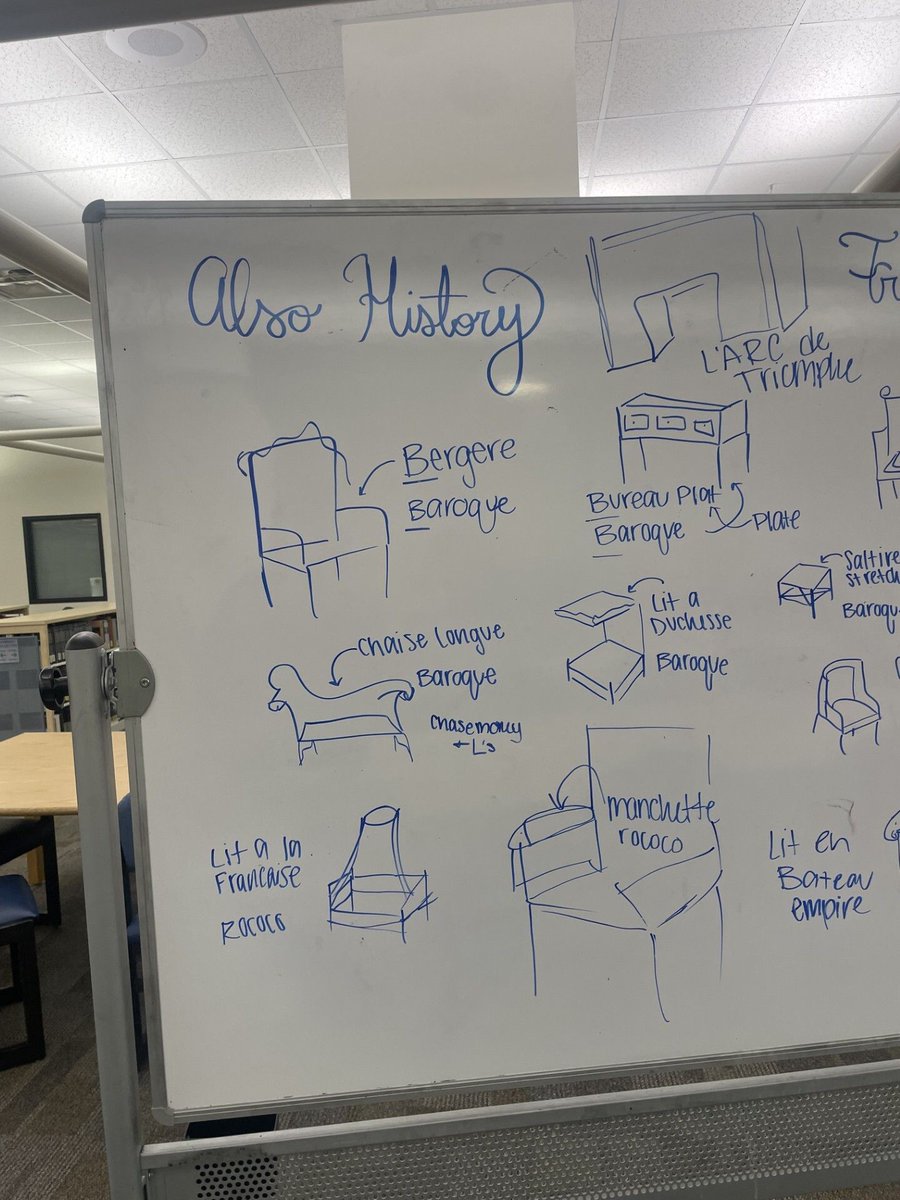 Also History
L'ARC de
Triomphe
Bergere
Baroque
Bureau Plat
Baroque
Plate
Saltire
Baroqu
Chaise Longue
Baroque
Lit a
Duchesse
Baroque
L's
manchette
rococo
Lit a la
Francaise
Rococo
Lit en
Bateau
empire